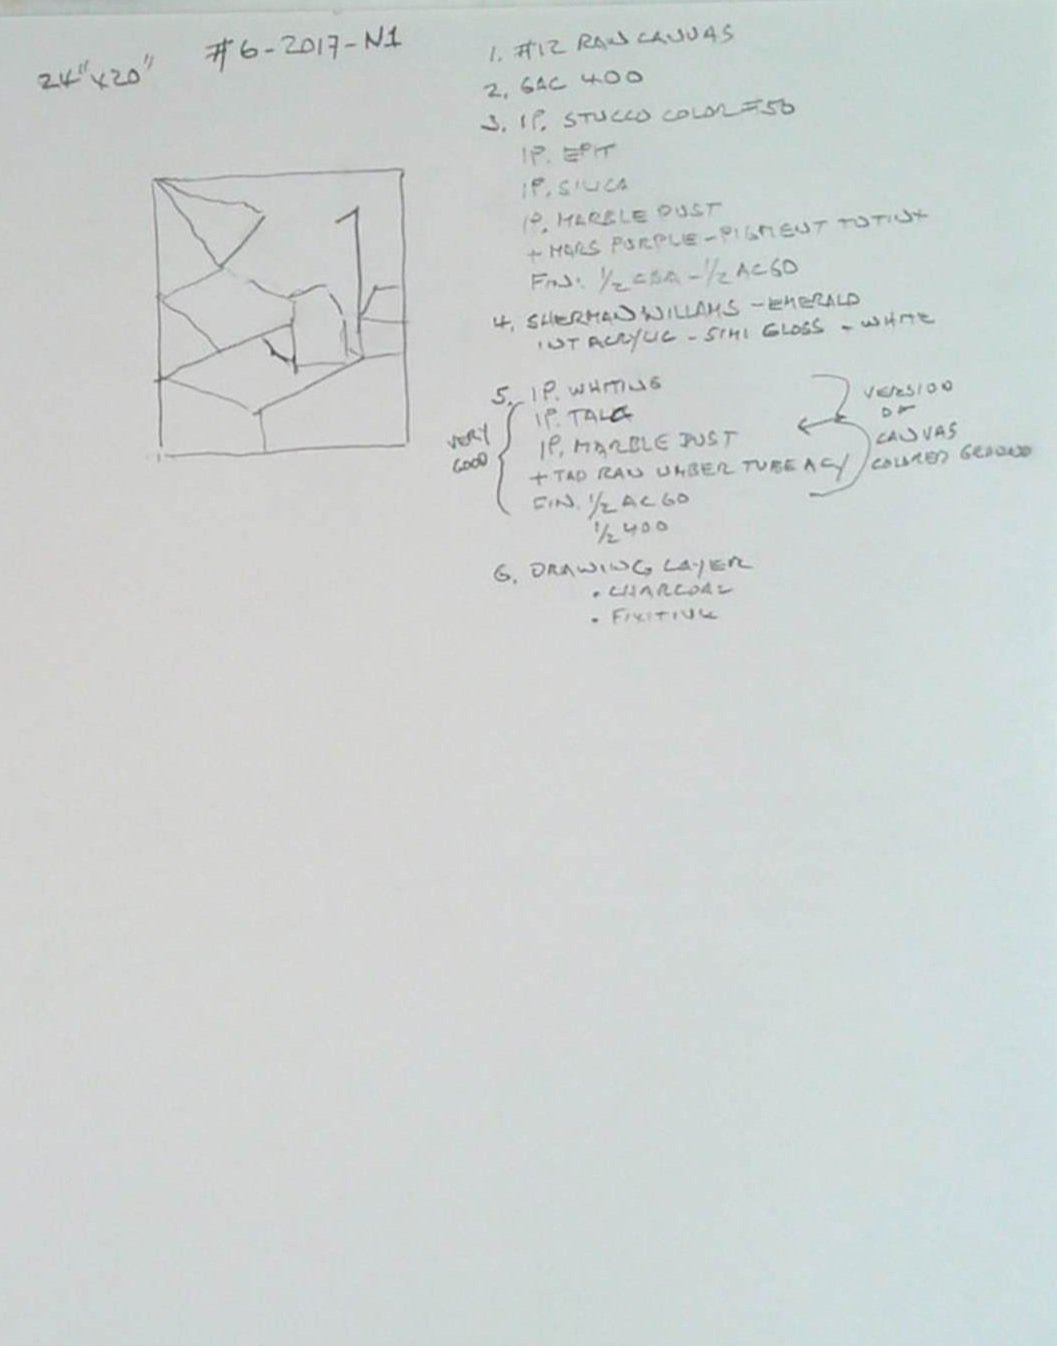 24" x 20"
#6-2017-N1
1. #12 RAW CANVAS
2. GAC 400
3. 1P. STUCCO COLOR #50
1P.
1P. SILICA
1P. MARBLE DUST
+ MARS PURPLE - PIGMENT TO TINT
FIN. 1/2 - 1/2 AC60
4. SHERMAN WILLAMS - EMERALD
INT ACRYLIC - SIMI GLOSS - WHITE
5. 1P. WHITING
1P. TALC
1P. MARBLE DUST
+ TAD RAW UMBER TUBE ACY
FIN. 1/2 AC60
1/2 400
VERY
GOOD
VERSION
OF
CANVAS
COLORED GROUND
6. DRAWING LAYER
• CHARCOAL
• FIXITIVE